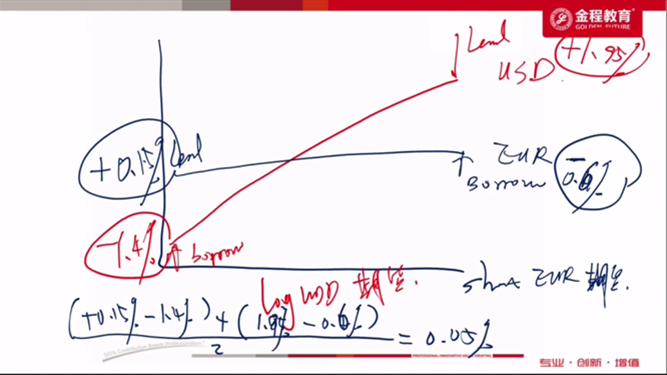 金程教育
GOLDEN FUTURE
Lend
USD
+1.95%
+0.15%
Lend
EUR
Borrow
0.6%
-1.4%
borrow
Long USD 期望.
short EUR 期望.
(+0.15% - 1.4%) + (1.95% - 0.6%)
2
= 0.05%
专业·创新·增值